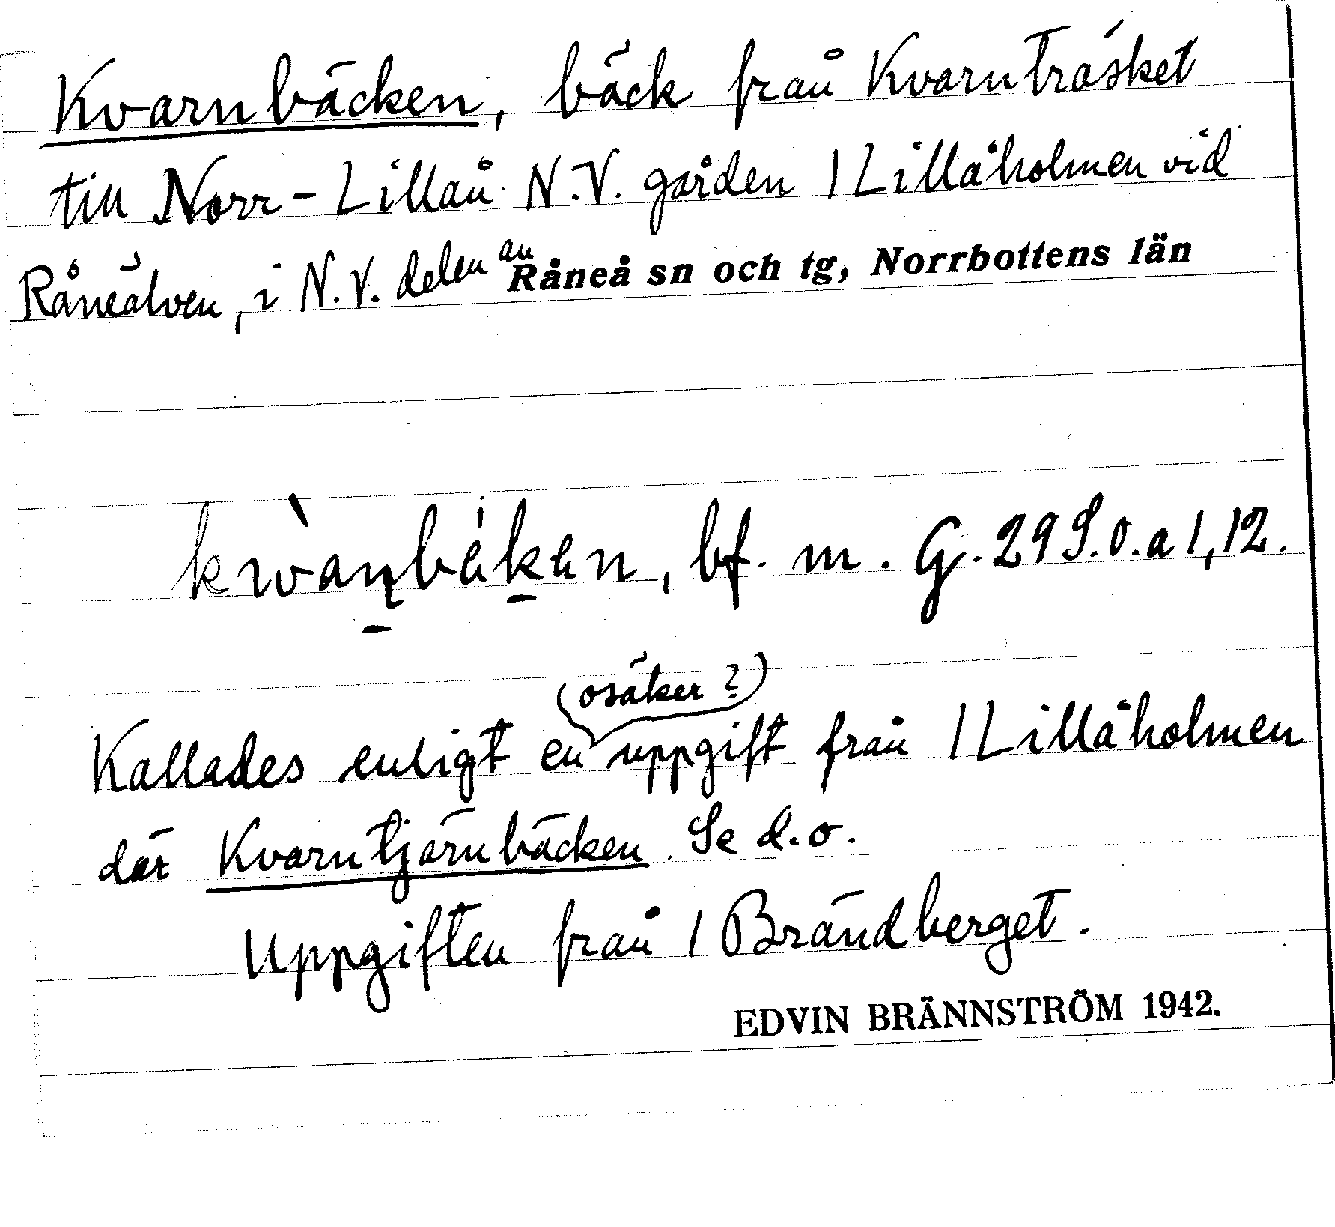 Kvarnbäcken, bäck från Kvarnträsket
till Norr-Lillån N.V. gården 1 Lillåholmen vid
Råneälven, i N.V. delen av Råneå sn och tg, Norrbottens län
bf. m. G. 29 S.O. a 1, 12.
(osäker?)
Kallades enligt en uppgift från 1 Lillåholmen
där Kvarntjärnbäcken. Se d.o.
Uppgiften från 1 Brändberget.
EDVIN BRÄNNSTRÖM 1942.